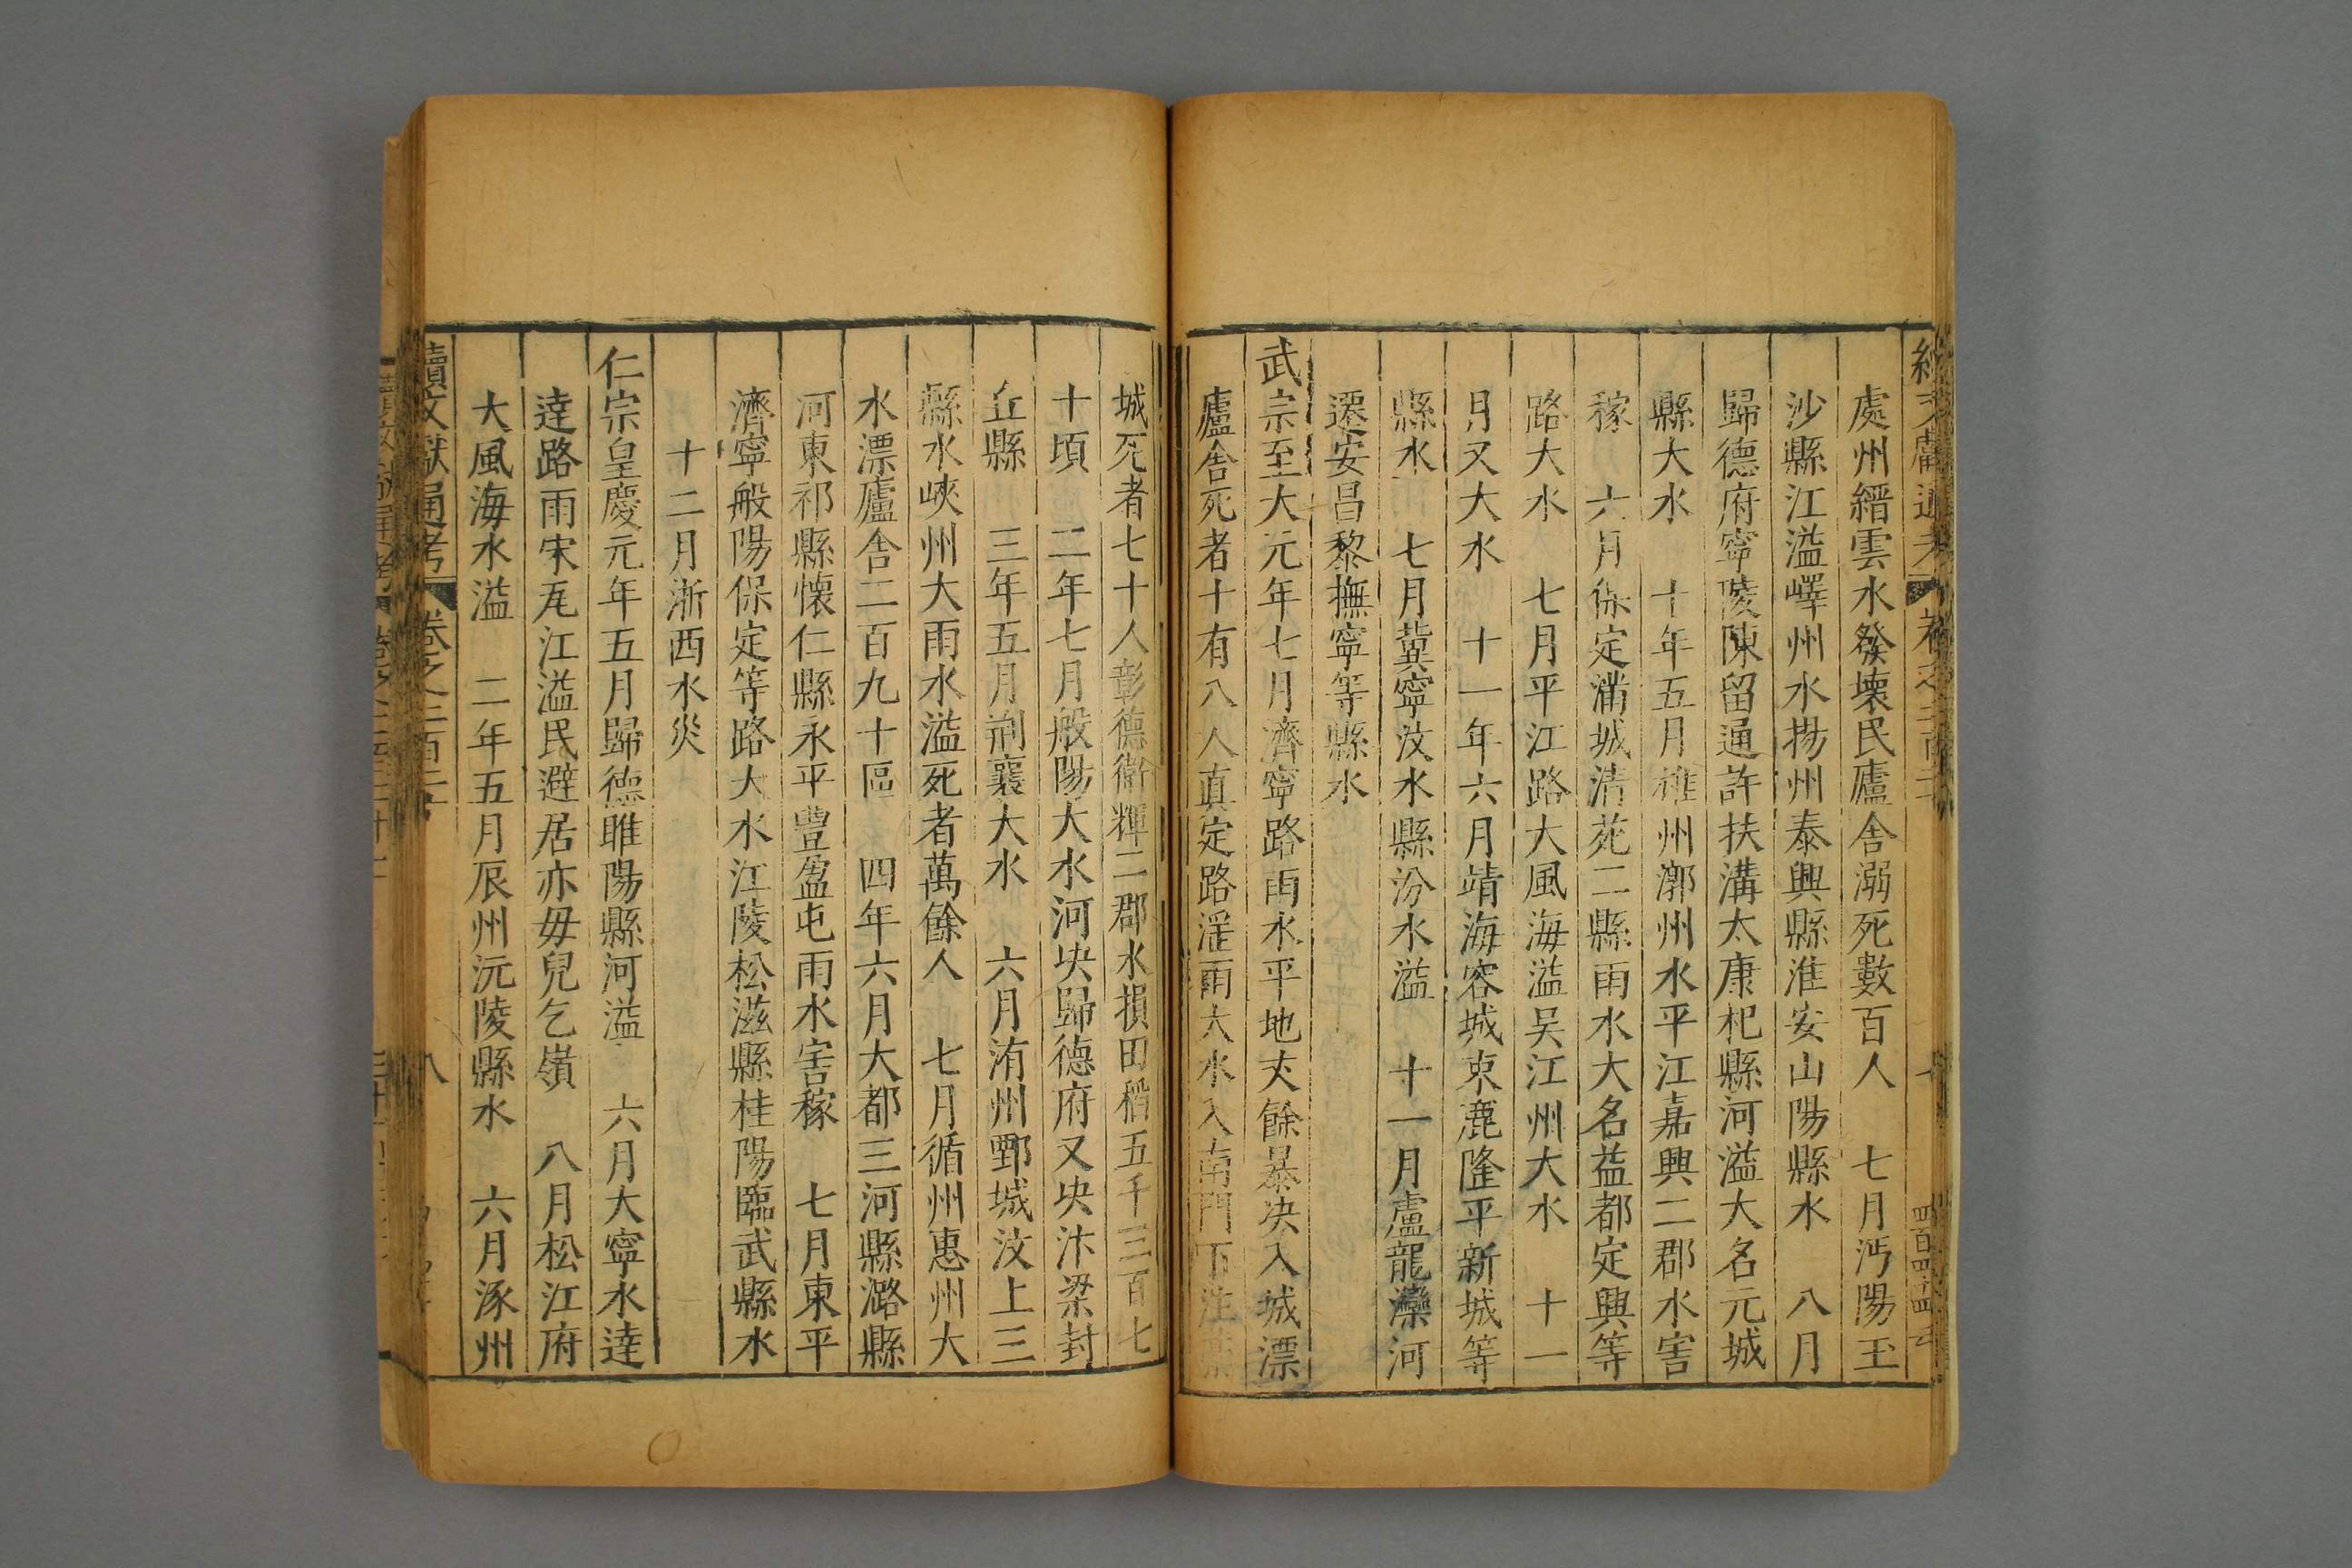 處州縉雲水發壞民廬舍溺死數百人　七月沔陽玉
沙縣江溢嶧州水揚州泰興縣淮安山陽縣水　八月
歸德府寧陵陳留通許扶溝太康杞縣河溢大名元城
縣大水　十年五月雄州漷州水平江嘉興二郡水害
稼　六月保定滿城清苑二縣雨水大名益都定興等
路大水　七月平江路大風海溢吴江州大水　十一
月又大水　十一年六月靖海容城束鹿隆平新城等
縣水　七月冀寧汶水縣汾水溢　十一月盧龍灤河
遷安昌黎撫寧等縣水
武宗至大元年七月濟寧路雨水平地丈餘暴决入城漂
廬舍死者十有八人真定路淫雨大水入南門下注
城死者七十人彰德衛輝二郡水損田稻五千三百七
十頃　二年七月般陽大水河决歸德府又决汴梁封
丘縣　三年五月荆襄大水　六月洧州鄄城汶上三
縣水峽州大雨水溢死者萬餘人　七月循州惠州大
水漂廬舍二百九十區　四年六月大都三河縣潞縣
河東祁縣懷仁縣永平豊盈屯雨水害稼　七月東平
濟寧般陽保定等路大水江陵松滋縣桂陽臨武縣水
十二月浙西水災
仁宗皇慶元年五月歸德睢陽縣河溢　六月大寧水達
達路雨宋瓦江溢民避居亦毋兒乞嶺　八月松江府
大風海水溢　二年五月辰州沅陵縣水　六月涿州
續文獻通考　卷之二百二十　八